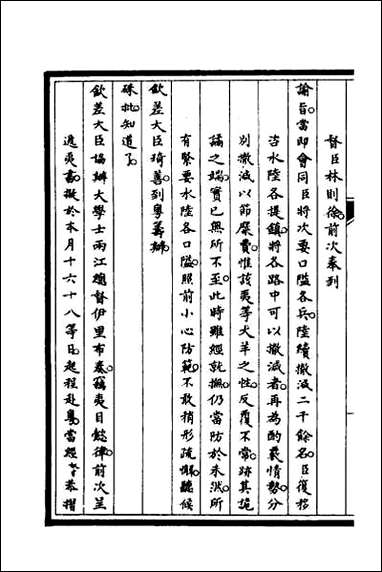 督臣林則徐前次奉到
諭旨當即會同臣將次要口隘各兵陸續撤減二千餘名臣復移
咨水陸各提鎮將各路中可以撤減者再為酌裁情勢分
別撤減以節糜費惟該夷等犬羊之性反覆不常跡其詭
譎之端實已無所不至此時雖經就撫仍當防於未然所
有緊要水陸各口隘照前小心防範不敢稍形疏懈聽候
欽差大臣琦善到粵籌辦
硃批知道了
欽差大臣協辦大學士兩江總督伊里布奏竊夷目懿律前次呈
遞夷書擬於本月十六十八等日起程赴粵當經奴才恭摺